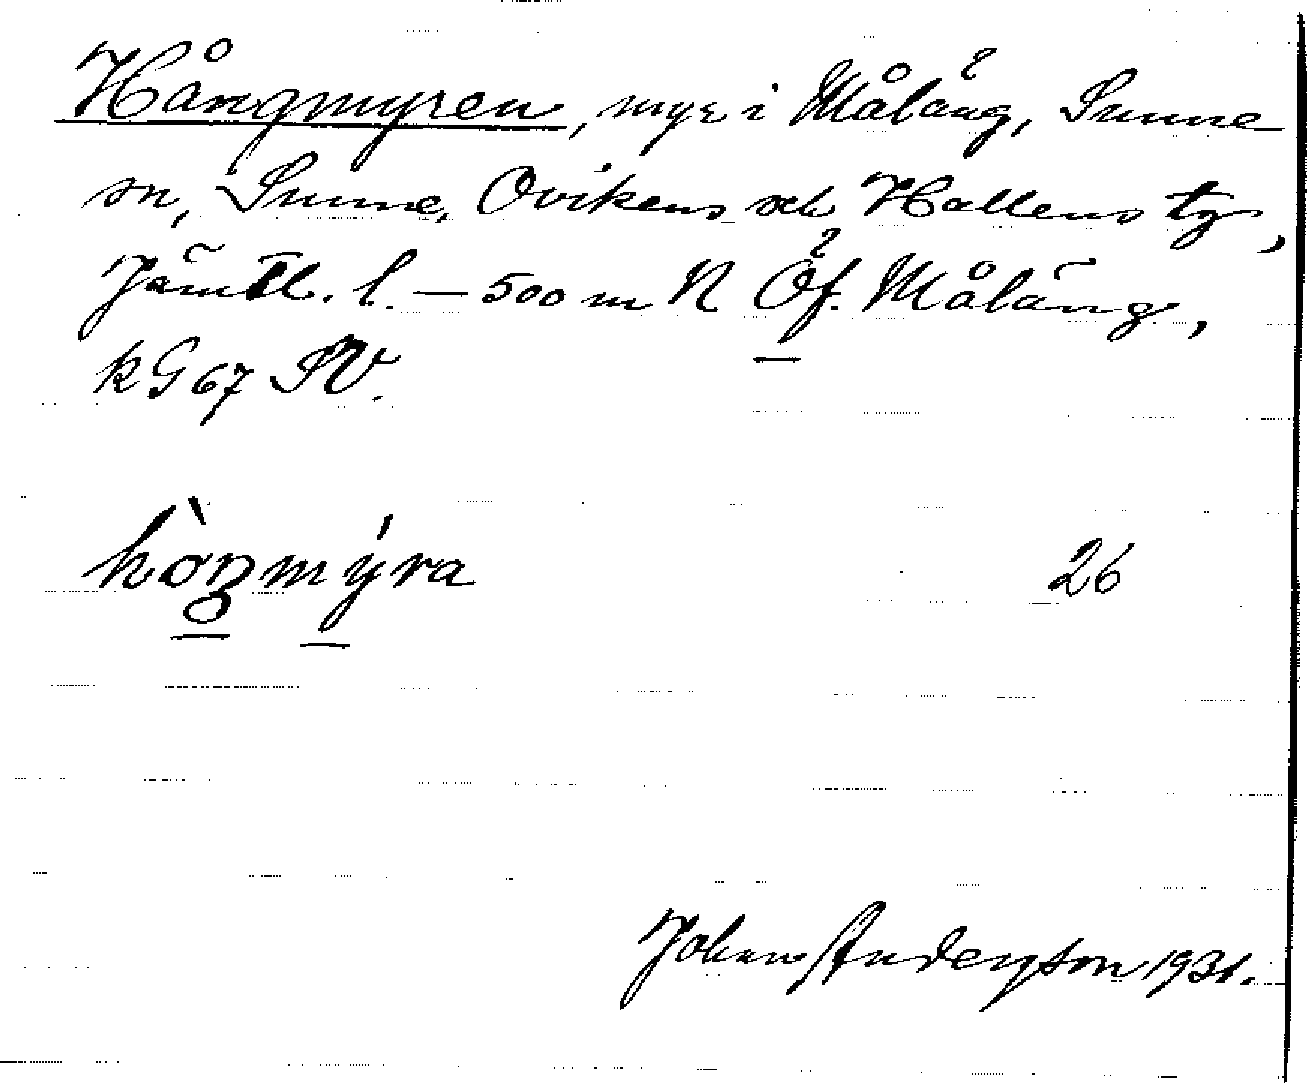 Hångmyren, myr i Målång, Sunne
sn, Sunne, Ovikens och Hallens tg,
Jämtl. l. — 500 m N Öf. Målång,
kG67 SV.
hòŋmýra 26
Johan Anderson 1931.